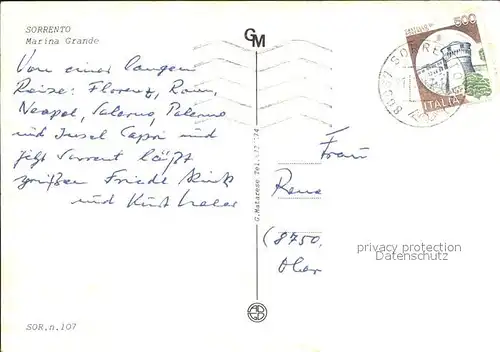 SORRENTO
Marina Grande
GM
Von einer langen
Reise: Florenz, Rom,
Neapel, Salerno, Palermo
und Insel Capri und
jetzt Sorrent läßt
grüßen Friede
und Kurt
G.Matarese Tel.
Frau
Rena
(8750
Ober
privacy protection
Datenschutz
500
ITALIA
SOR.n.107